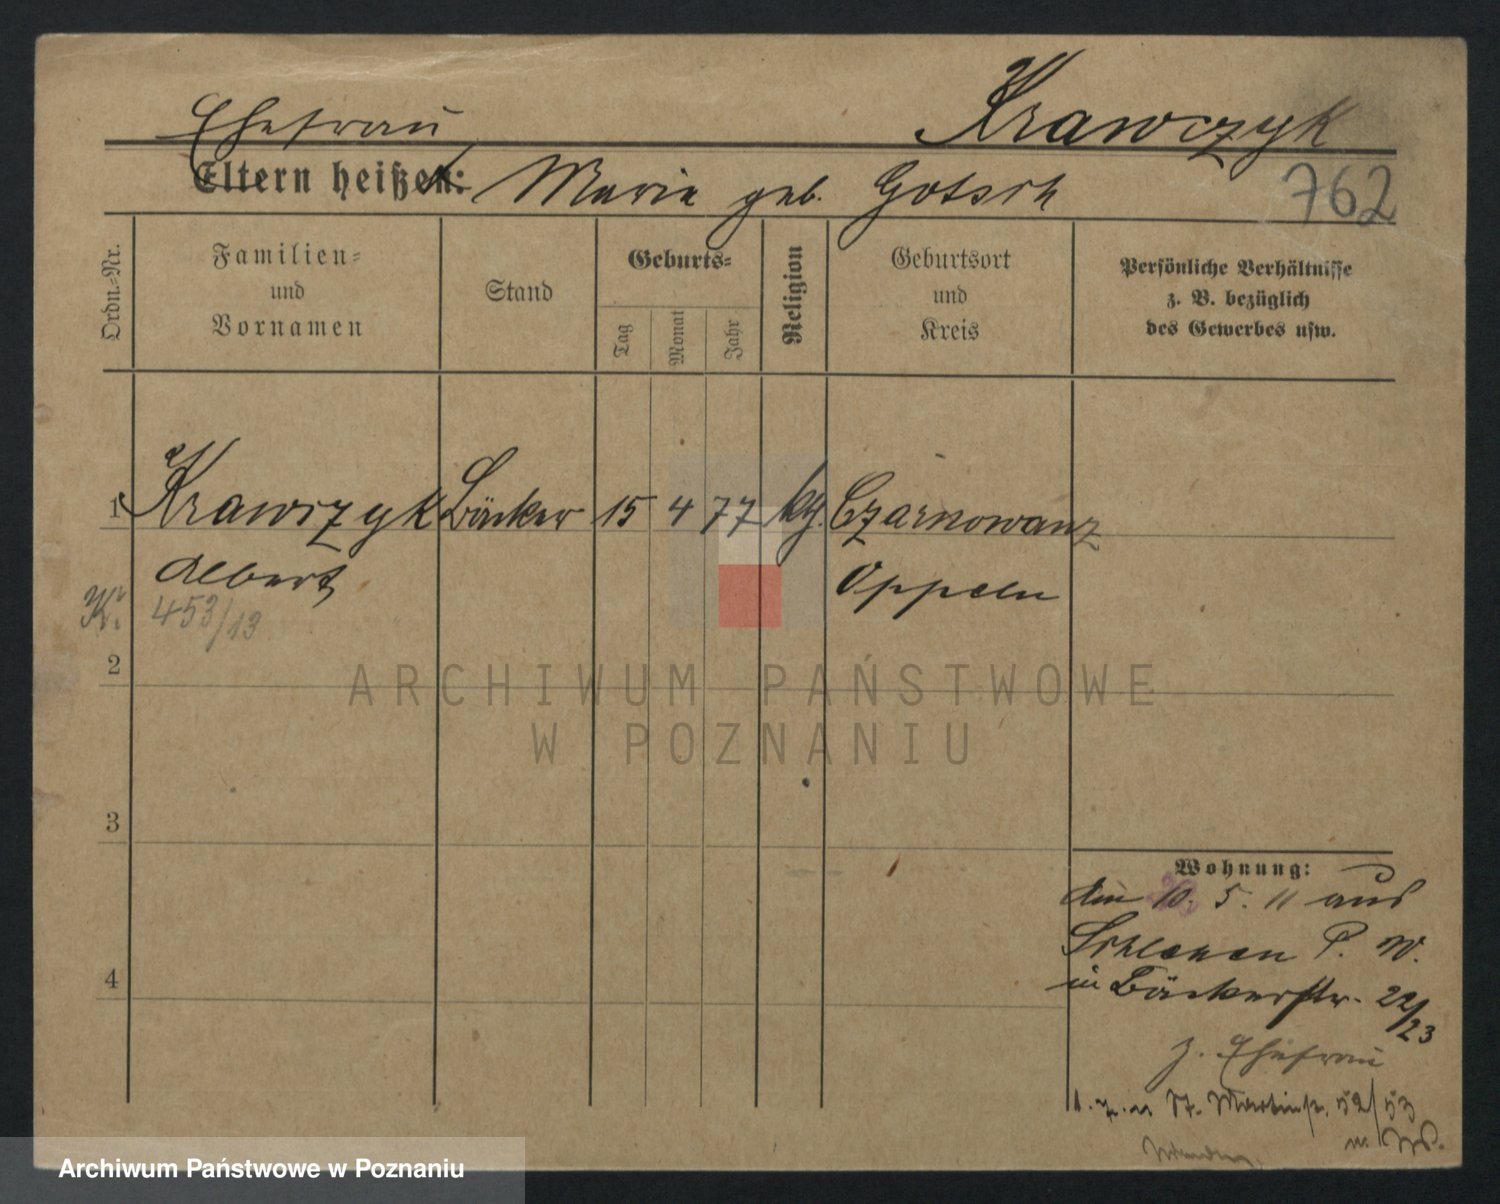 Ehefrau Krawczyk
Eltern heißen: Maria geb. Gotsch
762
Ordn.-Nr.
Familien-
und
Vornamen
Stand
Geburts-
Tag
Monat
Jahr
Religion
Geburtsort
und
Kreis
Persönliche Verhältnisse
z. B. bezüglich
des Gewerbes usw.
1 Krawczyk Bäcker 15 4 77 kg. Czarnowanz
Albert Oppeln
K. 453/13
2
ARCHIWUM PAŃSTWOWE
W POZNANIU
3
4
Wohnung:
Am 10. 5. 11 aus
P. W.
in Bäckerstr. 22/23
z. Ehefrau
St. Martinstr. 52/53
Archiwum Państwowe w Poznaniu